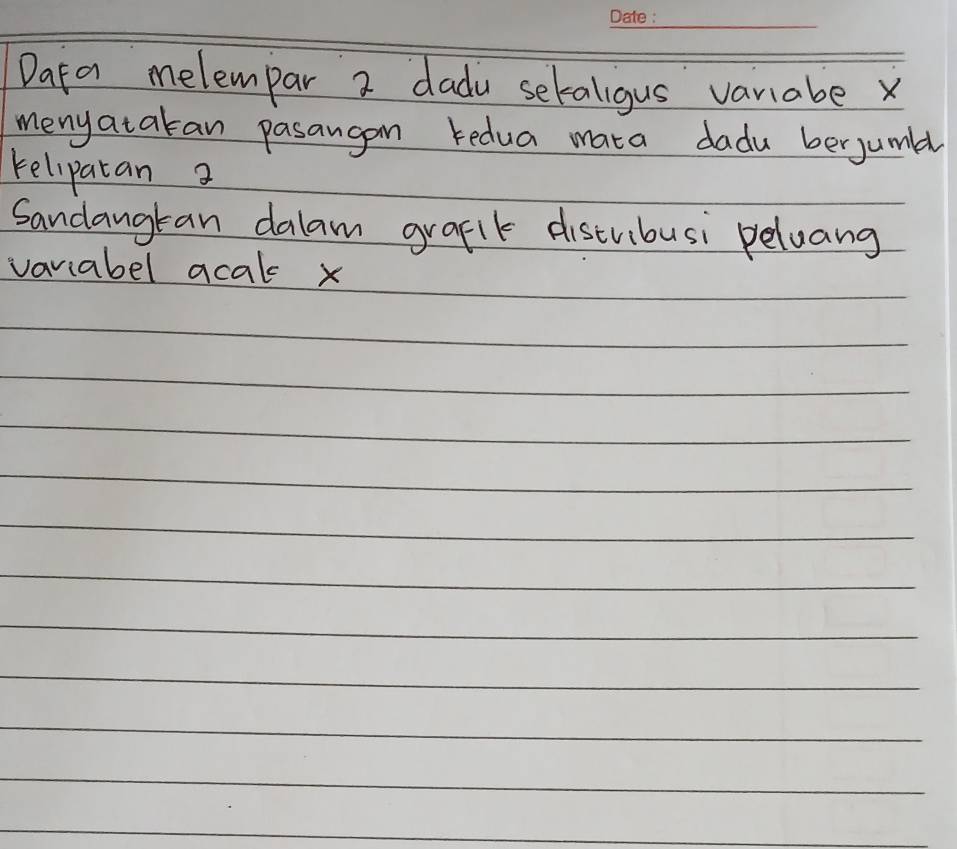 Date :
Dafa melempar 2 dadu sekaligus variabe x
menyatakan pasangan kedua mata dadu berjumla
kelipatan 2
Sandangkan dalam grafik distribusi peluang
variabel acak x